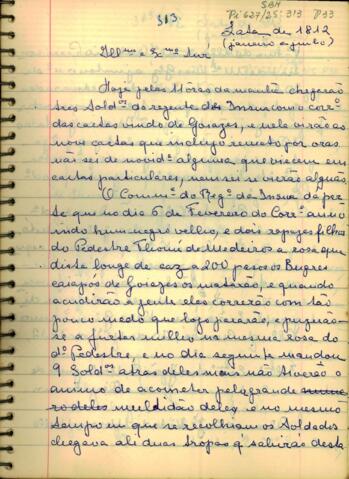 313
SBH
Pi 627/25:313 P33
Lata de 1812
(janeiro e junho)
Illmo e Exmo Snr
Hoje pelas 11 óras da manhã chegarão
tres Soldos do regente da Insua com o corro
das cartas vindo de Goiazes, e nele virão as
nove cartas que incluzo remeto por oras
nai sei de novide alguma que viscem em
cartas particulares, nem sei se virão alguãs
O Commde do Rego da Insua dá par
te que no dia 6 de Fevereiro do Corre anno
indo hum negro velho, e dois rapazes filhos
do Pedestre Thomé de Medeiros a rosa que
dista longe de caza 200 pasos os Bugres
caiapós de Goiazes os matarão, e quando
acudirão a jente eles correrão com tão
pouco medo que logo pararão, e puzerão-
se a furtar milho na mesma rosa do
do Pedestre, e no dia seguinte mandou
9 Soldos atras deles mas não tiverão o
animo de acometer pela grande
multidão deles e no mesmo
tempo em que se recolhiam os Soldados
chegava ali duas tropas q' sahirão desta